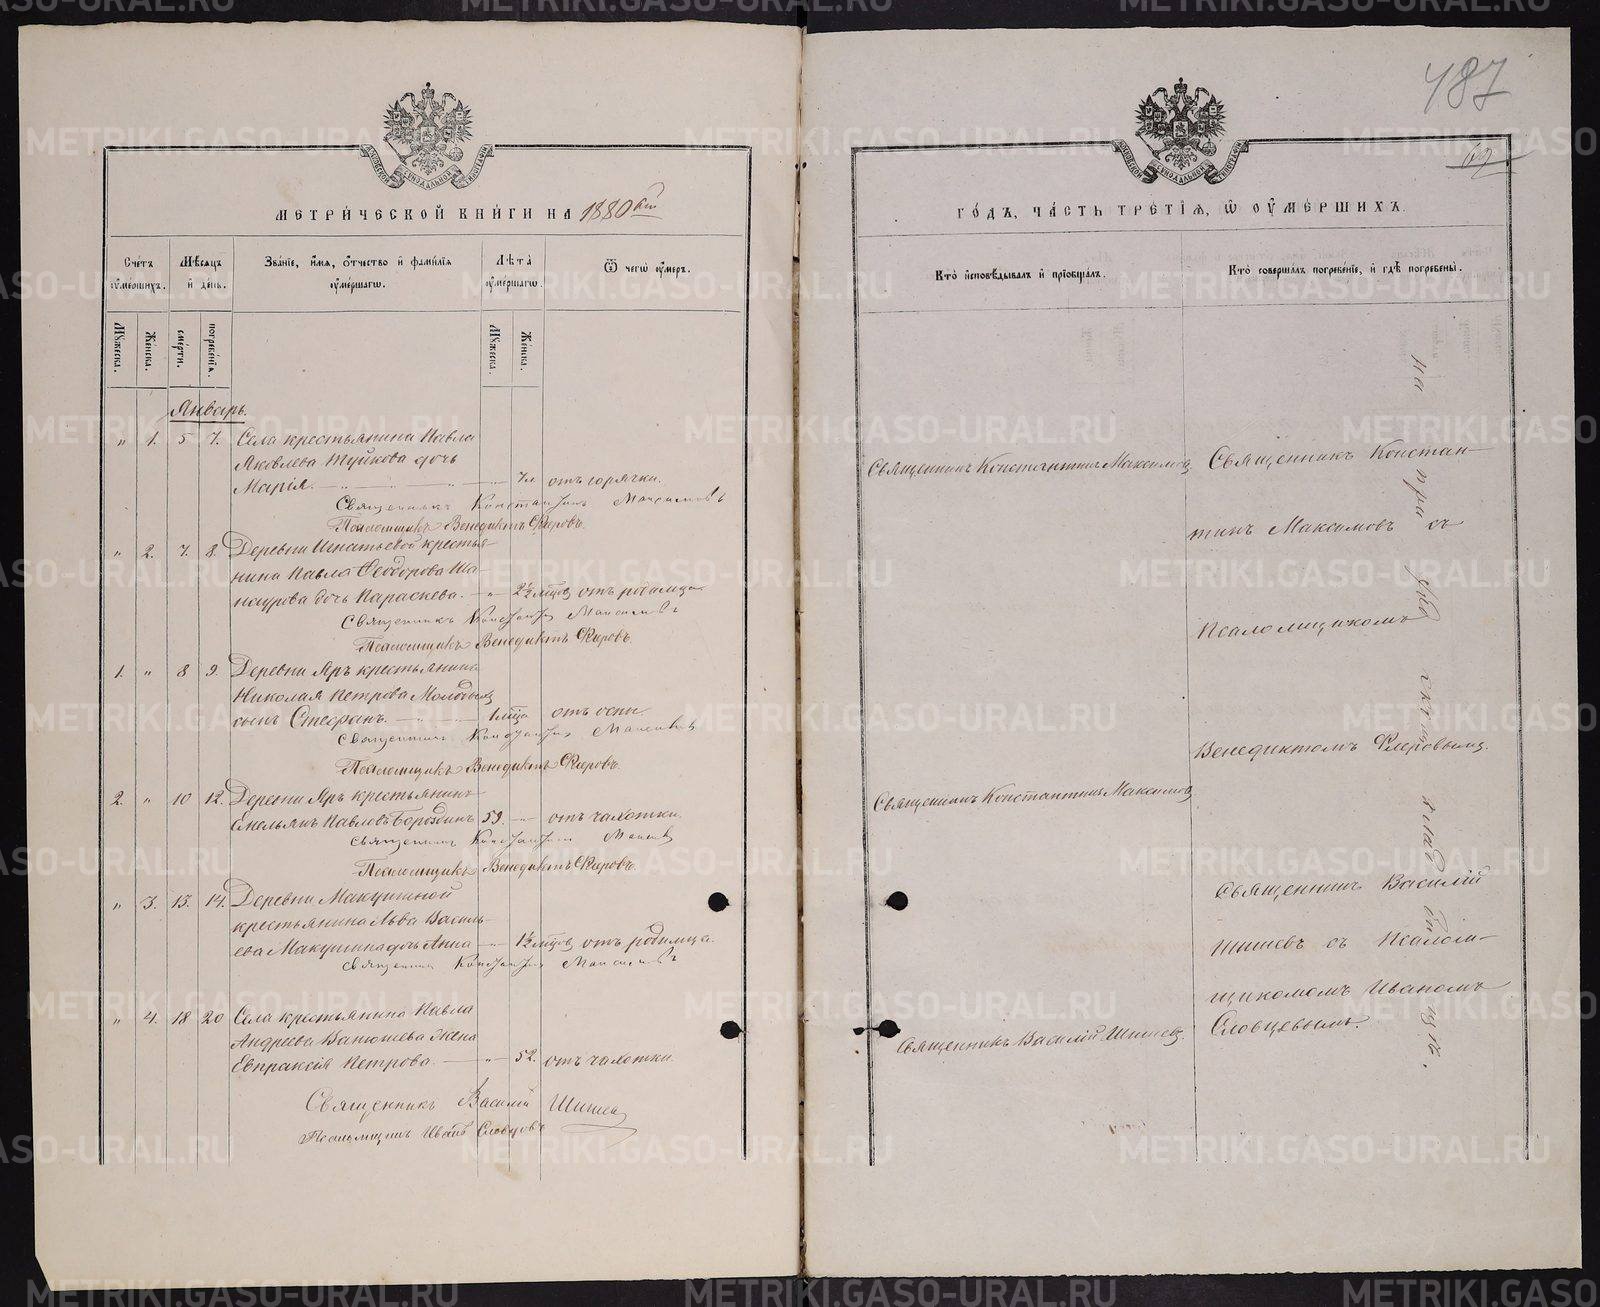 487
МЕТРИЧЕСКОЙ КНИГИ НА 1880 ый
Счетъ умершихъ.
Мѣсяцъ и день.
Званіе, имя, отчество и фамилія умершаго.
Лѣта умершаго.
Ѿ чего умеръ.
Мужеска.
Женска.
смерти.
погребенія.
Мужеска.
Женска.
Январь.
" 1. 5 7. Села крестьянина Павла
Яковлева Туйкова дочь
Марія. 7 л отъ горячки.
Священникъ Константинъ Максимовъ
Псаломщикъ Венедиктъ Флеровъ.
" 2. 7. 8. Деревни Игнатьевой крестья-
нина Павла Феодорова Ша-
наурова дочь Параскева. " 2½ мѣсц. отъ родимца
Священникъ Константинъ Максимовъ
Псаломщикъ Венедиктъ Флеровъ.
1. " 8 9. Деревни Яръ крестьянина
Николая Петрова Молодыхъ
сынъ Стефанъ. 1 мѣца отъ оспы
Священникъ Константинъ Максимовъ
Псаломщикъ Венедиктъ Флеровъ.
2. " 10 12. Деревни Яръ крестьянинъ
Емельянъ Павловъ Бороздинъ 59. отъ чахотки.
Священникъ Константинъ Максимовъ
Псаломщикъ Венедиктъ Флеровъ.
" 3. 13. 14. Деревни Макушиной
крестьянина Льва Василь-
ева Макушина дочь Анна 1½ мѣсц. отъ родимца.
Священникъ Константинъ Максимовъ
" 4. 18 20 Села крестьянина Павла
Андреева Ванюшева жена
Евпраксія Петрова. " 52. отъ чахотки.
Священникъ Василій Шишевъ
Псаломщикъ Иванъ Словцовъ
ГОДЪ, ЧАСТЬ ТРЕТІЯ, Ѿ УМЕРШИХЪ.
Кто исповѣдывалъ и пріобщалъ.
Кто совершалъ погребеніе, и гдѣ погребены.
Священникъ Константинъ Максимовъ
Священникъ Констан-
тинъ Максимовъ съ
Псаломщикомъ
Венедиктомъ Флеровымъ.
Священникъ Константинъ Максимовъ
Священникъ Василій
Шишевъ съ Псалом-
щикомъ Иваномъ
Словцевымъ.
Священникъ Василій Шишевъ.
на приходскомъ кладбищѣ.
METRIKI.GASO-URAL.RU